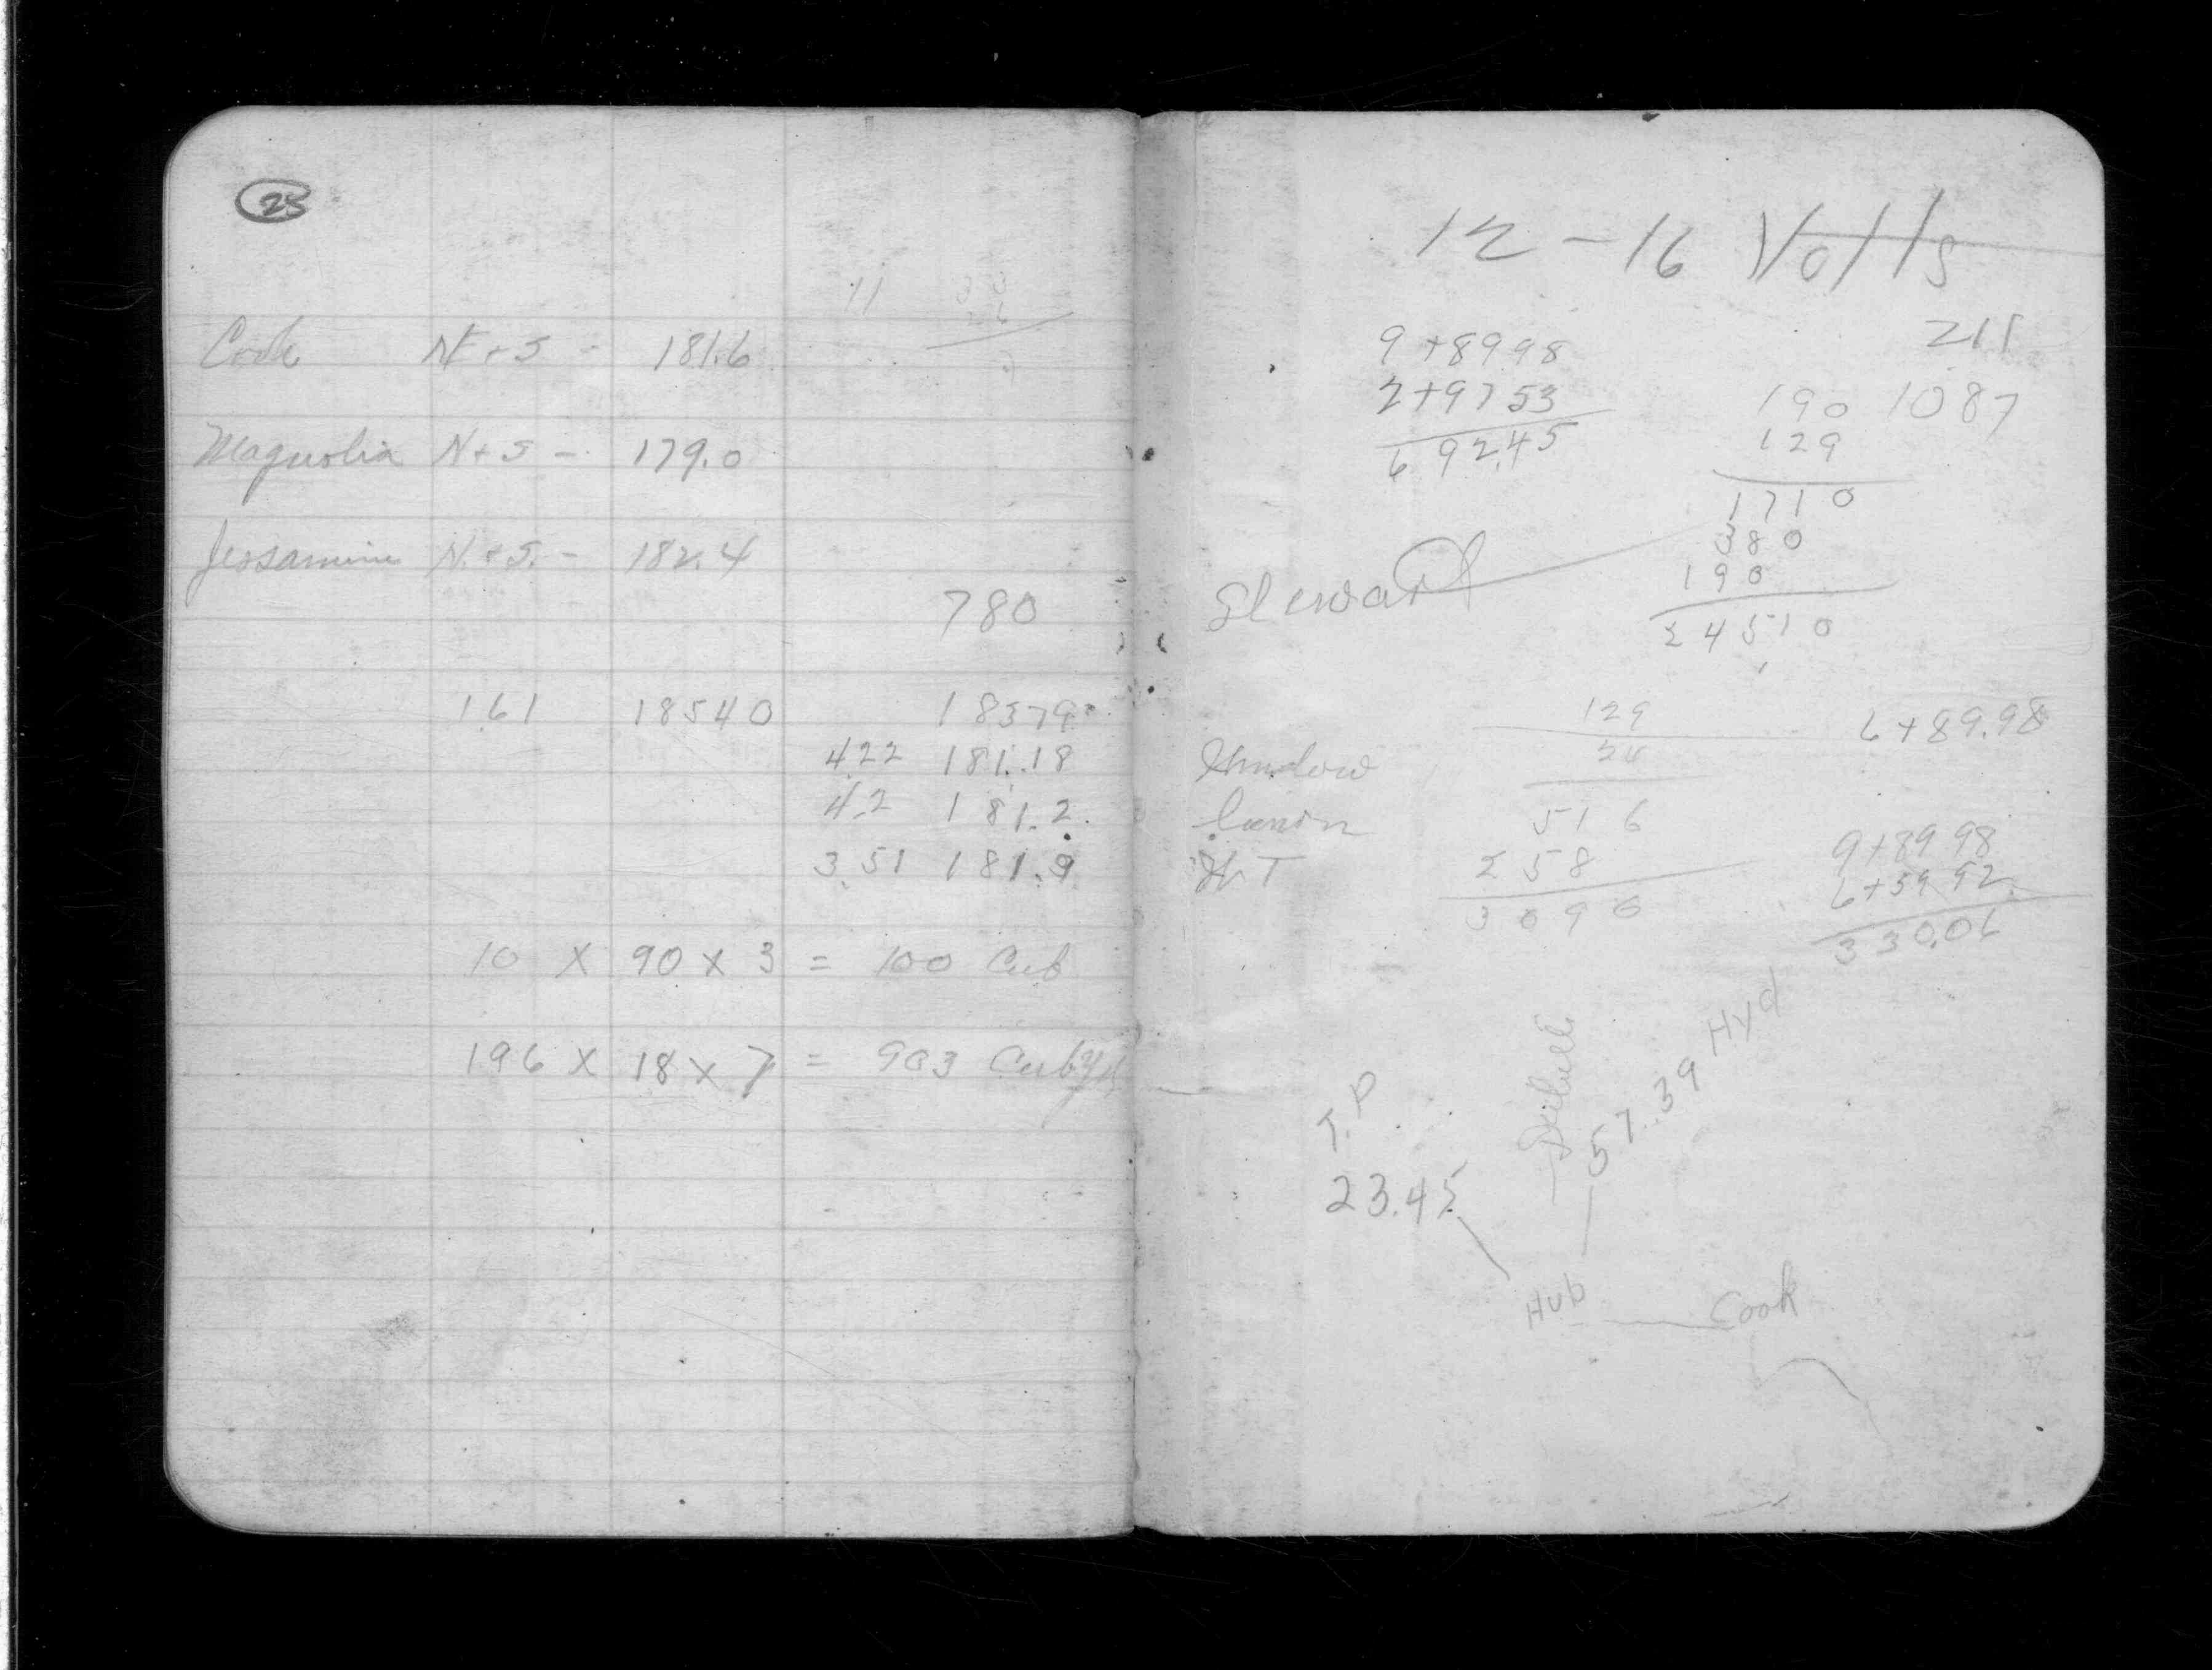 23
11
Cook N+S - 181.6
Magnolia N+S - 179.0
Jessamine N.+S. - 182.4
780
161 18540 18379
4.22 181.18
4.2 181.2
3.51 181.9
10 X 90 X 3 = 100 Cub
196 X 18 X 7 = 903 Cub Yds
12-16 Volts
211
9+8998
2+9753
692.45
190 1087
129
1710
380
190
24510
Steward
129
24
516
258
3096
6+89.98
H.T
9+8998
6+5992
330.06
T.P
23.45
57.39 Hyd
Hub Cook